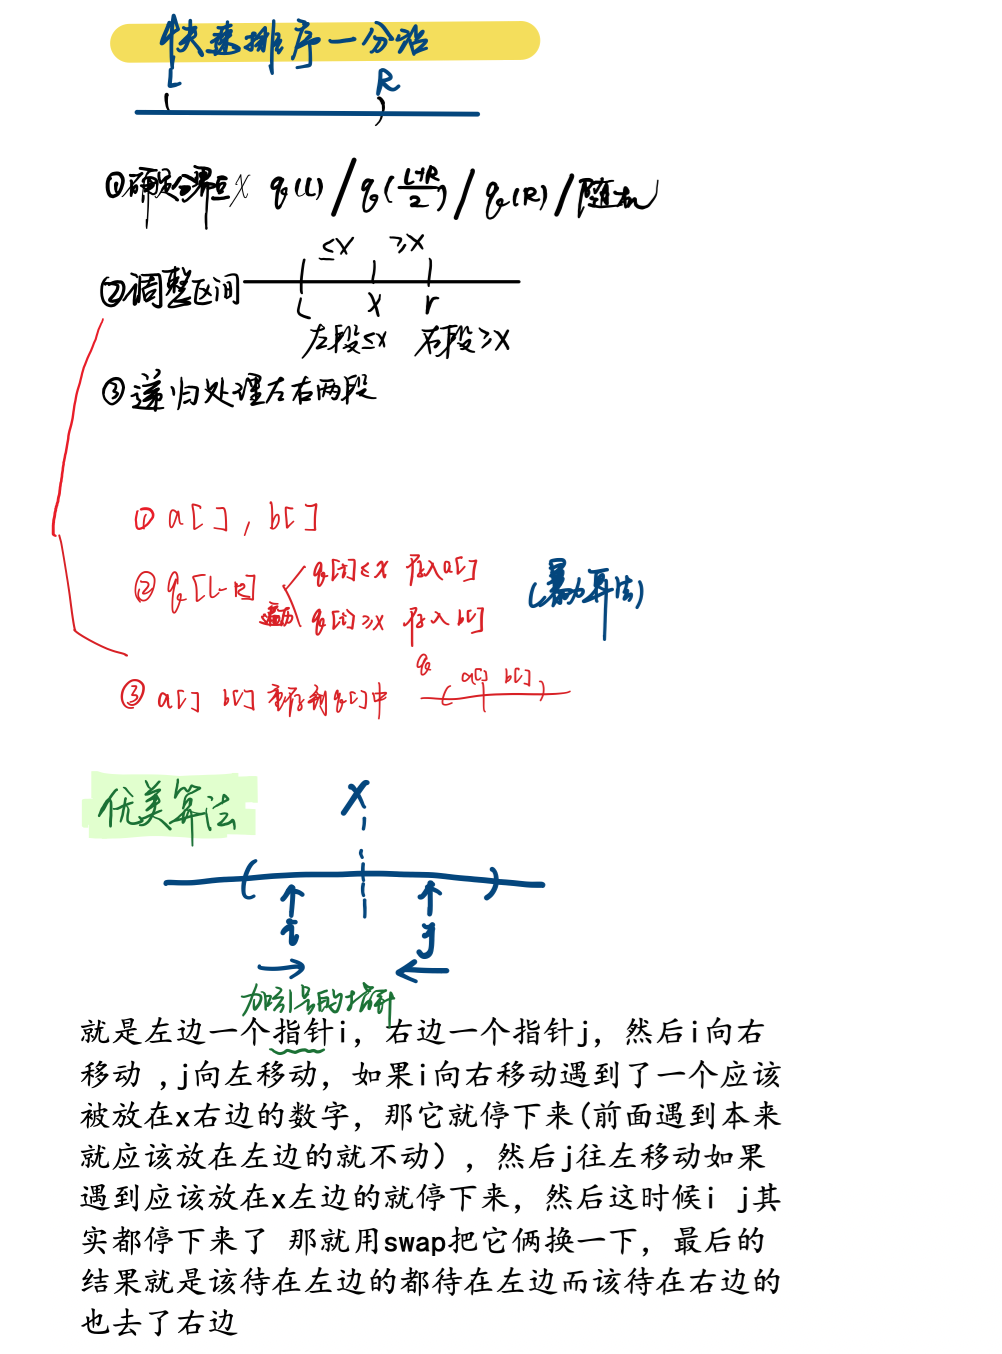 快速排序—分治
L R
①确定分界点x q(L)/q(L+R/2)/q(R)/随机
≤x ≥x
②调整区间
L x r
左段≤x 右段≥x
③递归处理左右两段
① a[], b[]
② q[L-R] 遍历
q[i]≤x 存入a[]
q[i]≥x 存入b[]
(暴力算法)
③ a[] b[] 重存到q[]中
q a[] b[]
优美算法
x
i j
加引号的指针
就是左边一个指针i, 右边一个指针j, 然后i向右
移动 ,j向左移动, 如果i向右移动遇到了一个应该
被放在x右边的数字, 那它就停下来(前面遇到本来
就应该放在左边的就不动) , 然后j往左移动如果
遇到应该放在x左边的就停下来, 然后这时候i j其
实都停下来了 那就用swap把它俩换一下, 最后的
结果就是该待在左边的都待在左边而该待在右边的
也去了右边